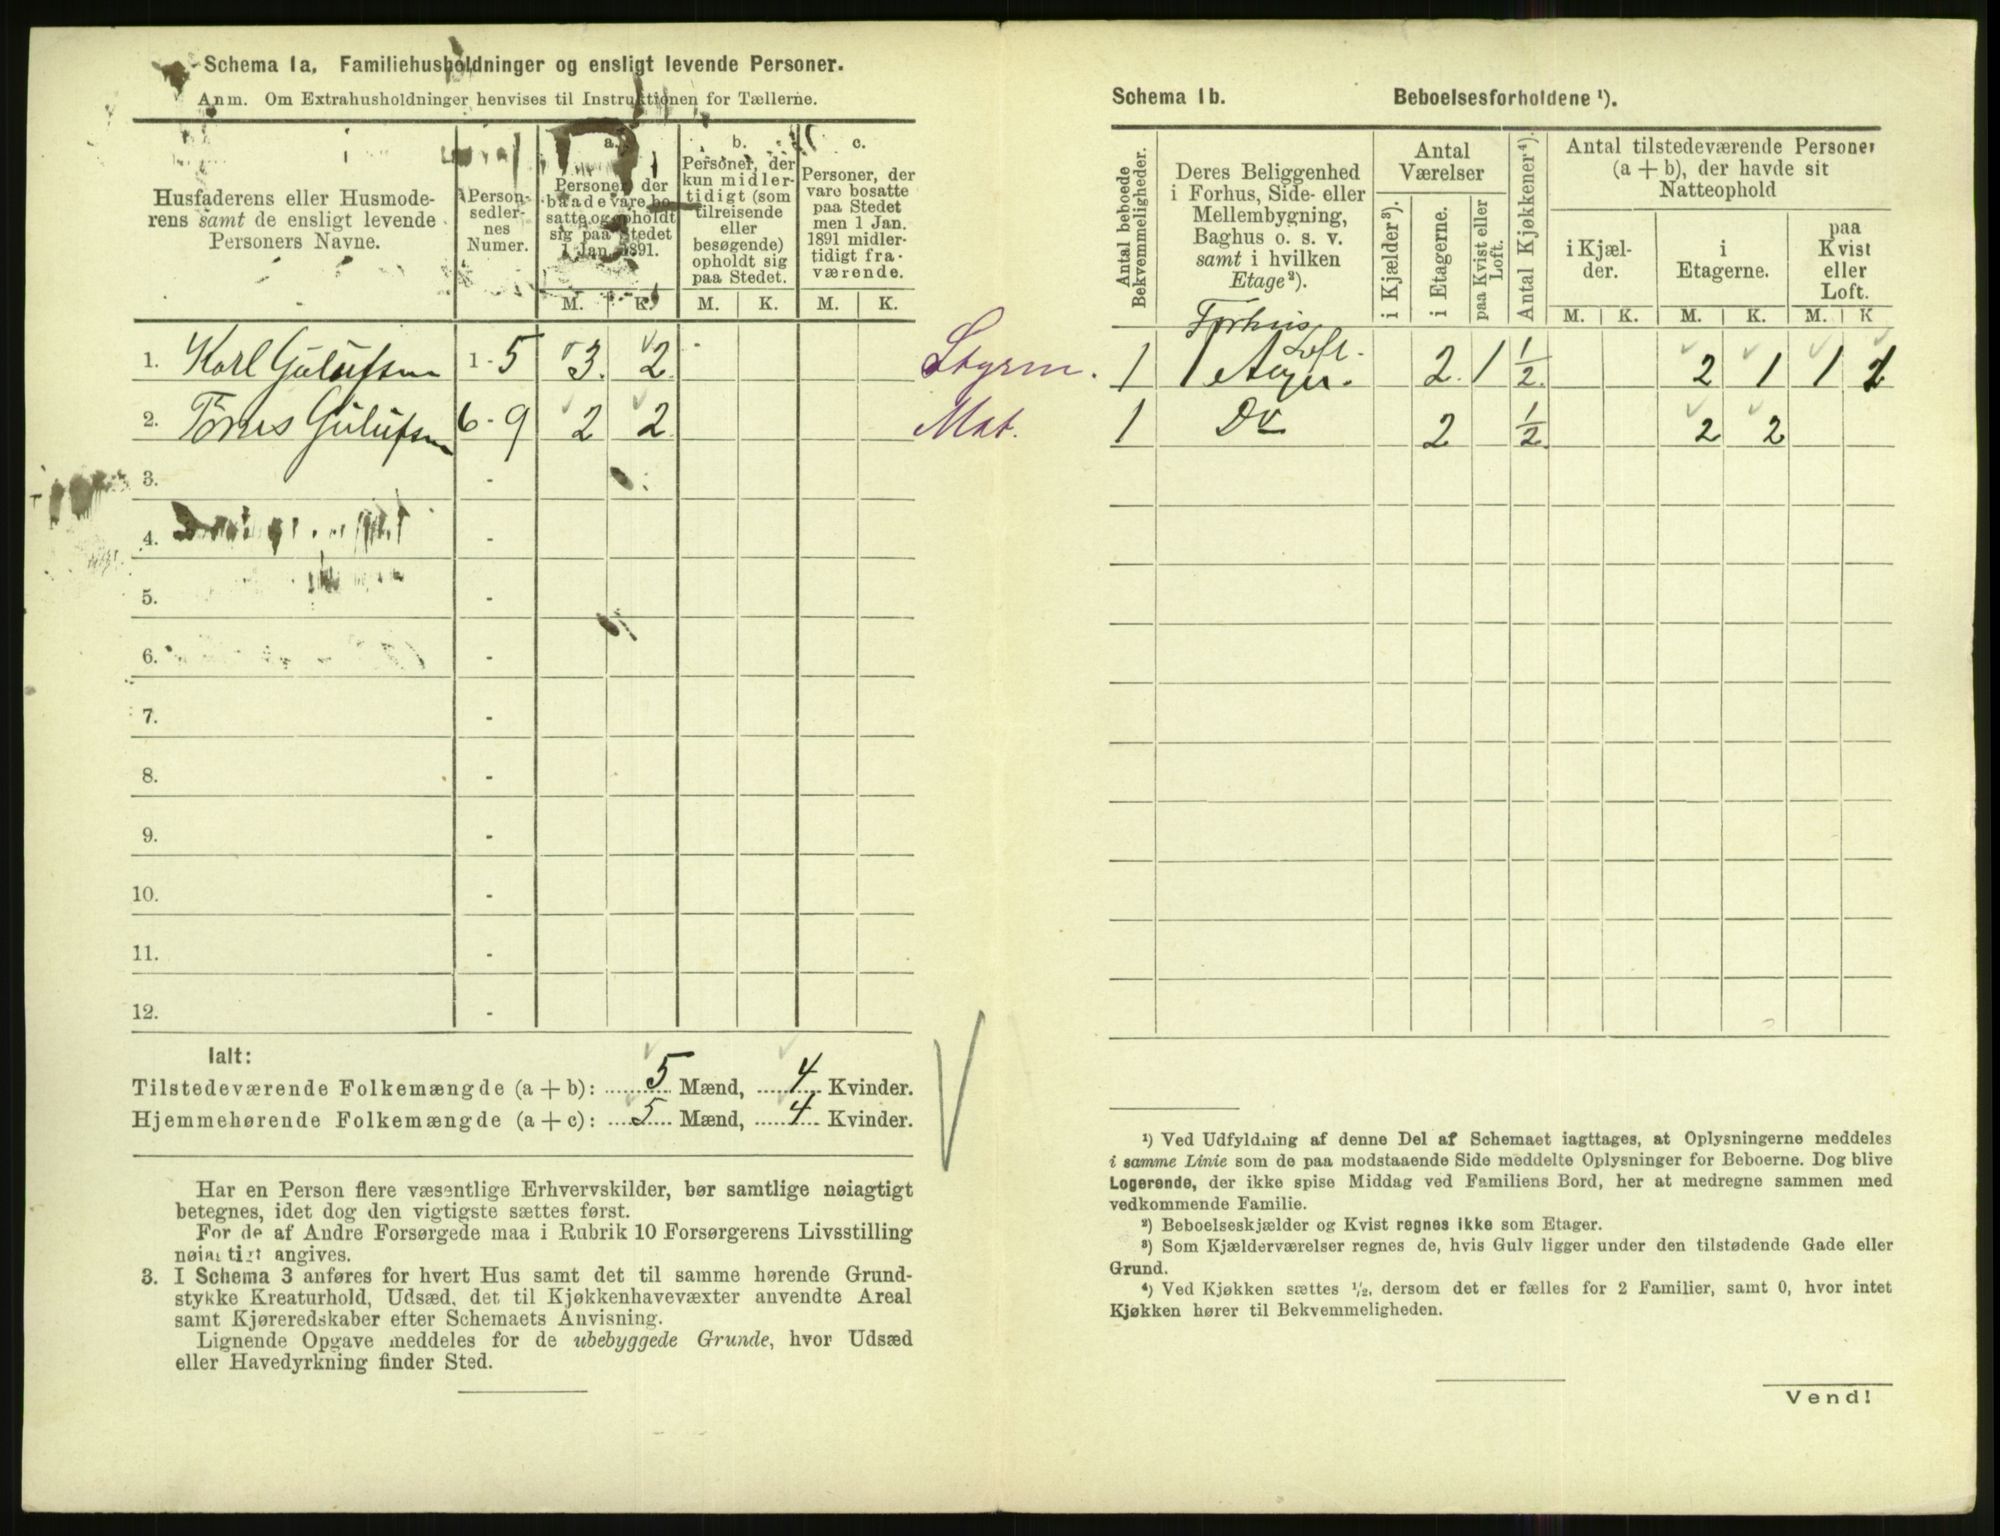 Schema 1a. Familiehusholdninger og ensligt levende Personer.
Anm. Om Extrahusholdninger henvises til Instruktionen for Tællerne.
Husfaderens eller Husmode-
rens samt de ensligt levende
Personers Navne.
Person-
sedler-
nes
Numer.
a.
Personer, der
baade vare bo-
satte og opholdt
sig paa Stedet
1 Jan. 1891.
b.
Personer, der
kun midler-
tidigt (som
tilreisende
eller
besøgende)
opholdt sig
paa Stedet.
c.
Personer, der
vare bosatte
paa Stedet
men 1 Jan.
1891 midler-
tidigt fra-
værende.
M. K. M. K. M. K.
1. Karl Gulufsen 1 - 5 3. 2. Styrm.
2. Tørres Gulufsen 6 - 9 2 2 Mat.
3. -
4. -
5. -
6. -
7. -
8. -
9. -
10. -
11. -
12. -
Ialt:
Tilstedeværende Folkemængde (a + b): 5 Mænd, 4 Kvinder.
Hjemmehørende Folkemængde (a + c): 5 Mænd, 4 Kvinder.
Har en Person flere væsentlige Erhvervskilder, bør samtlige nøiagtigt
betegnes, idet dog den vigtigste sættes først.
For de af Andre Forsørgede maa i Rubrik 10 Forsørgerens Livsstilling
nøiagtigt angives.
3. I Schema 3 anføres for hvert Hus samt det til samme hørende Grund-
stykke Kreaturhold, Udsæd, det til Kjøkkenhavevæxter anvendte Areal
samt Kjøreredskaber efter Schemaets Anvisning.
Lignende Opgave meddeles for de ubebyggede Grunde, hvor Udsæd
eller Havedyrkning finder Sted.
Schema 1b. Beboelsesforholdene ¹).
Antal beboede
Bekvemmeligheder.
Deres Beliggenhed
i Forhus, Side- eller
Mellembygning,
Baghus o. s. v.
samt i hvilken
Etage²).
Antal
Værelser
i Kjælder³).
i Etagerne.
paa Kvist eller
Loft.
Antal Kjøkkener⁴).
Antal tilstedeværende Personer
(a + b), der havde sit
Natteophold
i Kjæl-
der.
i
Etagerne.
paa
Kvist
eller
Loft.
M. K. M. K. M. K
Forhus
Loft.
1 1 2. 1 ½. 2 1 1 1
1 Do 2 ½. 2 2
¹) Ved Udfyldning af denne Del af Schemaet iagttages, at Oplysningerne meddeles
i samme Linie som de paa modstaaende Side meddelte Oplysninger for Beboerne. Dog blive
Logerende, der ikke spise Middag ved Familiens Bord, her at medregne sammen med
vedkommende Familie.
²) Beboelseskjælder og Kvist regnes ikke som Etager.
³) Som Kjælderværelser regnes de, hvis Gulv ligger under den tilstødende Gade eller
Grund.
⁴) Ved Kjøkken sættes ½, dersom det er fælles for 2 Familier, samt 0, hvor intet
Kjøkken hører til Bekvemmeligheden.
Vend!